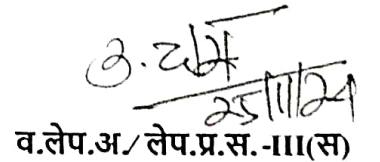 25/11/24
व.लेप.अ./ लेप.प्र.स. -III(स)